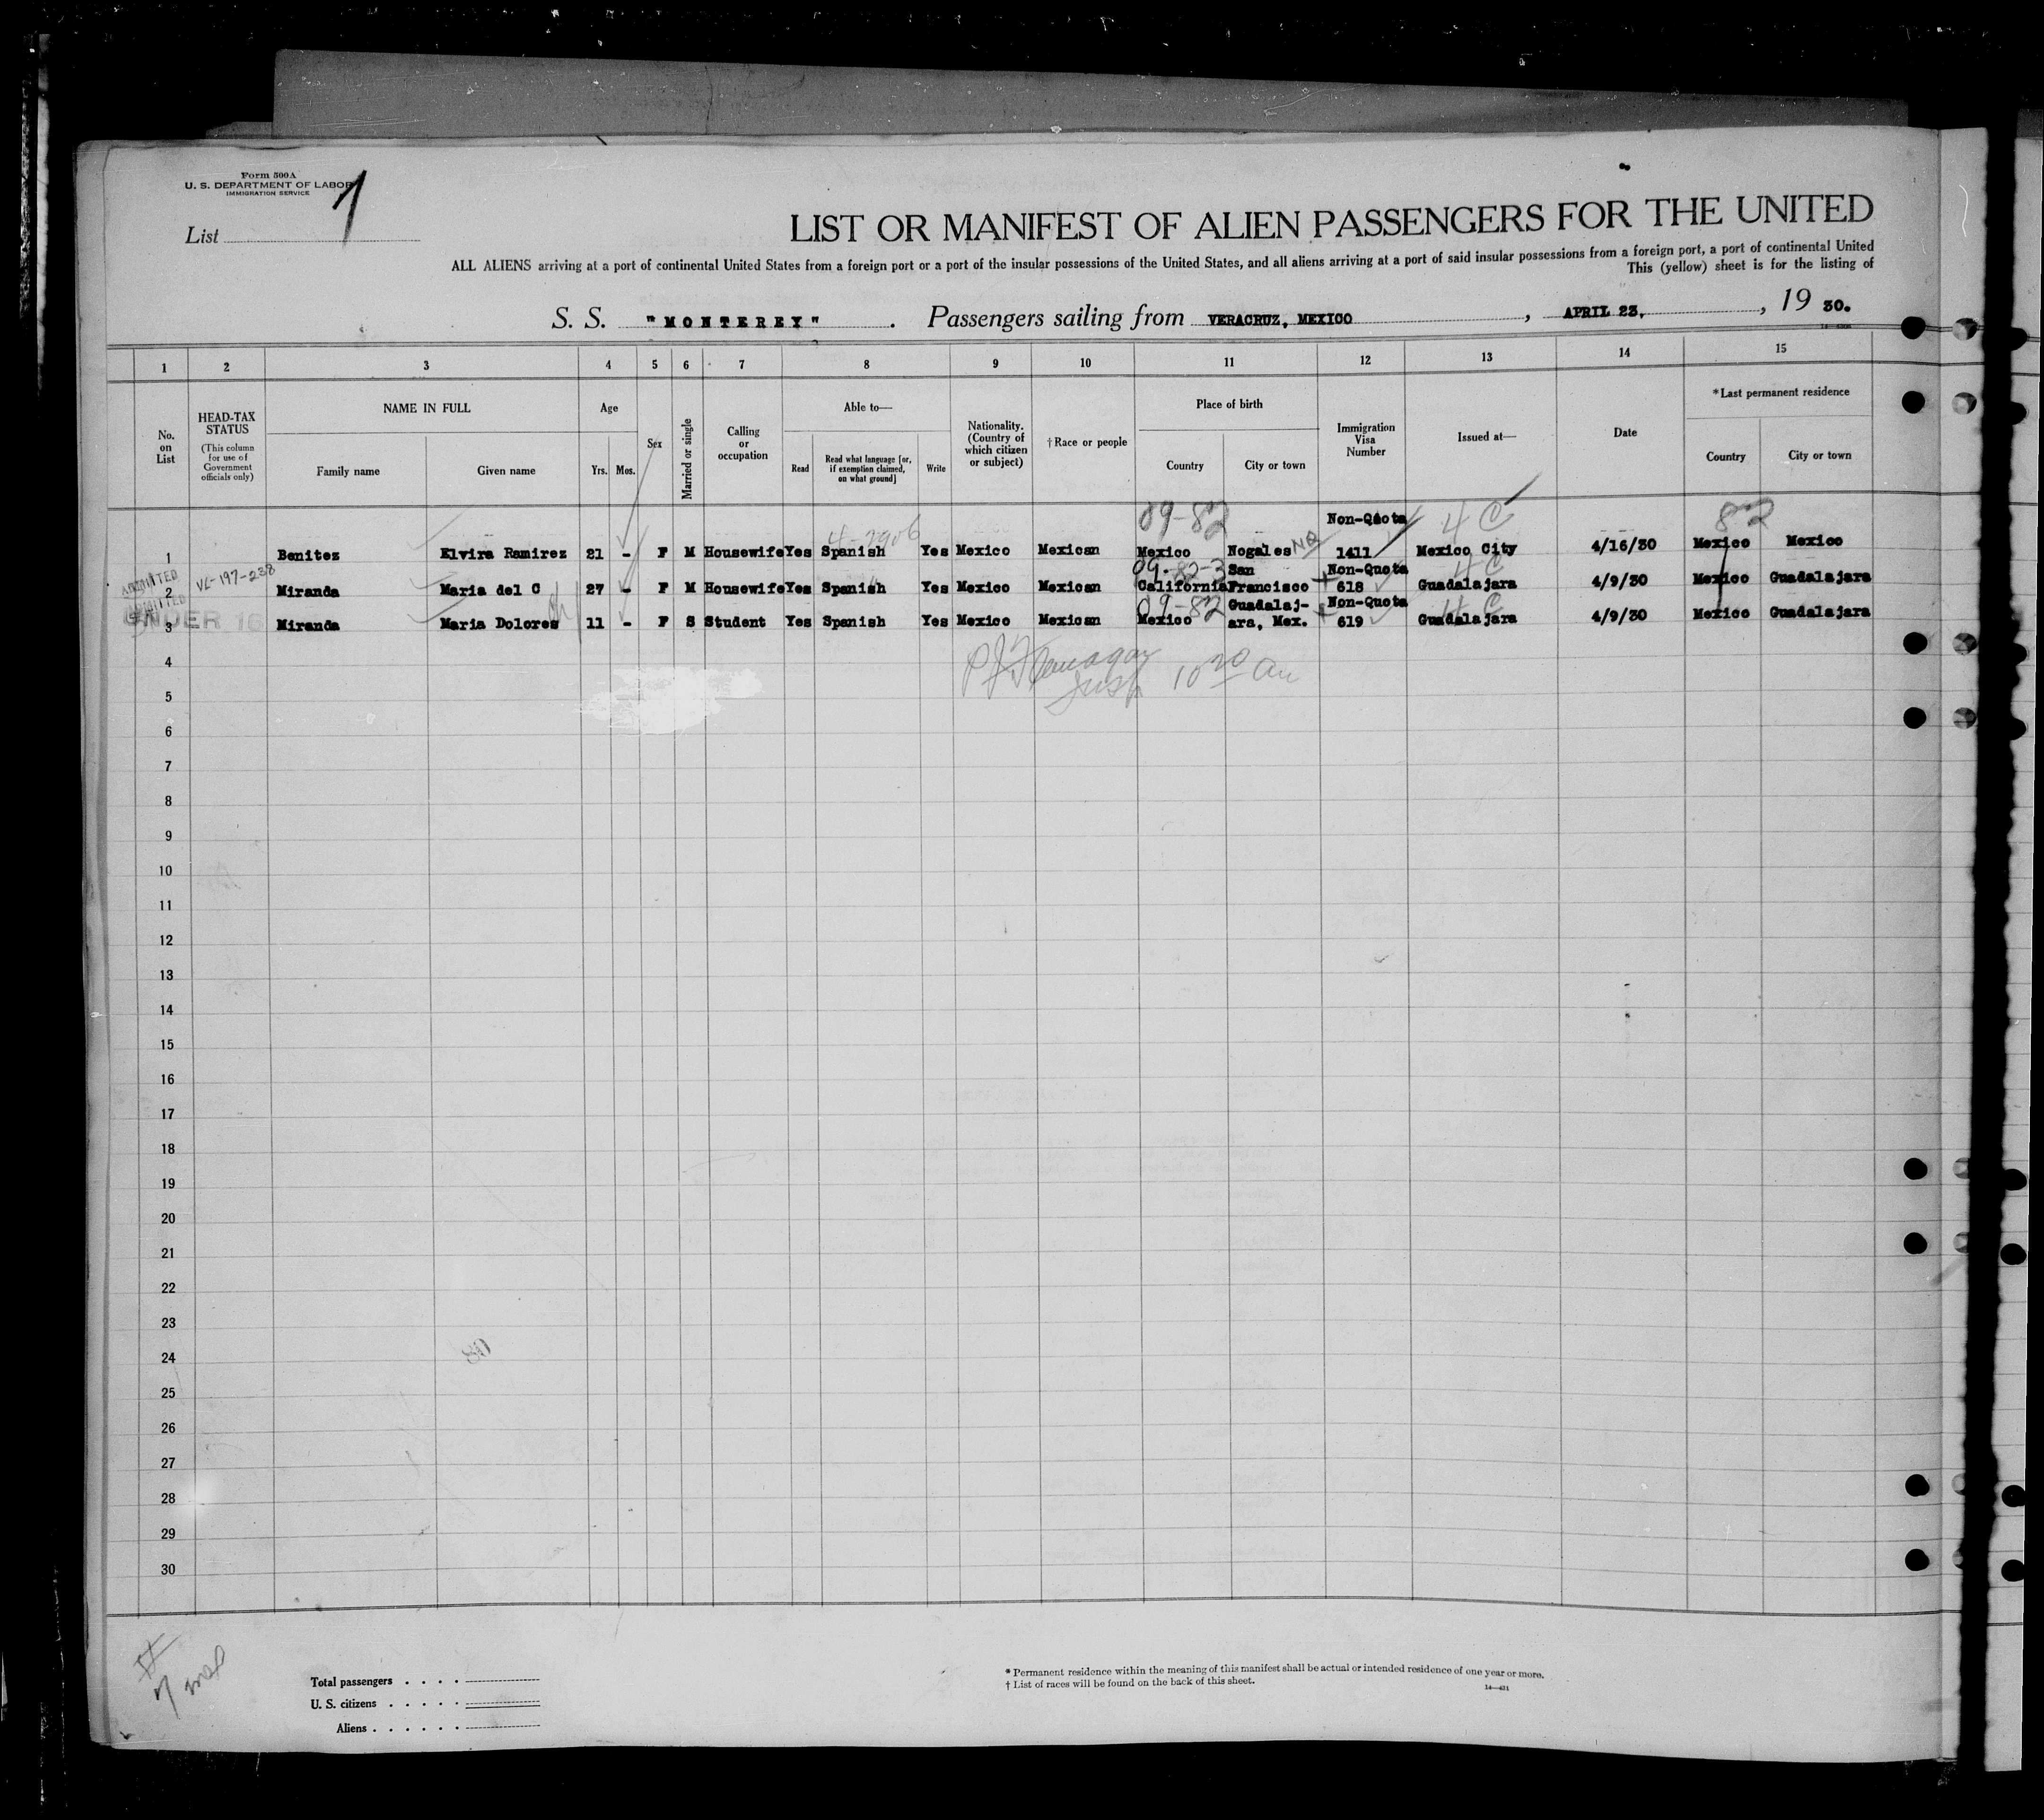 Form 500A
U. S. DEPARTMENT OF LABOR
IMMIGRATION SERVICE
1
List
LIST OR MANIFEST OF ALIEN PASSENGERS FOR THE UNITED
ALL ALIENS arriving at a port of continental United States from a foreign port or a port of the insular possessions of the United States, and all aliens arriving at a port of said insular possessions from a foreign port, a port of continental United
This (yellow) sheet is for the listing of
S. S. "MONTEREY" . Passengers sailing from VERACRUZ, MEXICO , APRIL 23, , 19 30.
1 2 3 4 5 6 7 8 9 10 11 12 13 14 15
No. on List
HEAD-TAX STATUS
(This column for use of Government officials only)
NAME IN FULL
Family name Given name
Age
Yrs. Mos.
Sex
Married or single
Calling or occupation
Able to—
Read
Read what language [or, if exemption claimed, on what ground]
Write
Nationality. (Country of which citizen or subject)
†Race or people
Place of birth
Country City or town
Immigration Visa Number
Issued at—
Date
*Last permanent residence
Country City or town
09-82 Non-Quota 4 C 82
4-2906 NQ
1 Benitez Elvira Ramirez 21 - F M Housewife Yes Spanish Yes Mexico Mexican Mexico Nogales 1411 Mexico City 4/16/30 Mexico Mexico
ADMITTED VL-197-238 09-82-3 San Non-Quota 4 C
2 Miranda Maria del C 27 - F M Housewife Yes Spanish Yes Mexico Mexican California Francisco 618 Guadalajara 4/9/30 Mexico Guadalajara
ADMITTED 09-82 Guadalaj- Non-Quota 4 C
UNDER 16
3 Miranda Maria Dolores 11 - F S Student Yes Spanish Yes Mexico Mexican Mexico ara, Mex. 619 Guadalajara 4/9/30 Mexico Guadalajara
4
P J Flanagan
Insp 10 20 am
5
6
7
8
9
10
11
12
13
14
15
16
17
18
19
20
21
22
23
24
25
26
27
28
29
30
Total passengers . . . .
U. S. citizens . . . . .
Aliens . . . . . .
* Permanent residence within the meaning of this manifest shall be actual or intended residence of one year or more.
† List of races will be found on the back of this sheet.